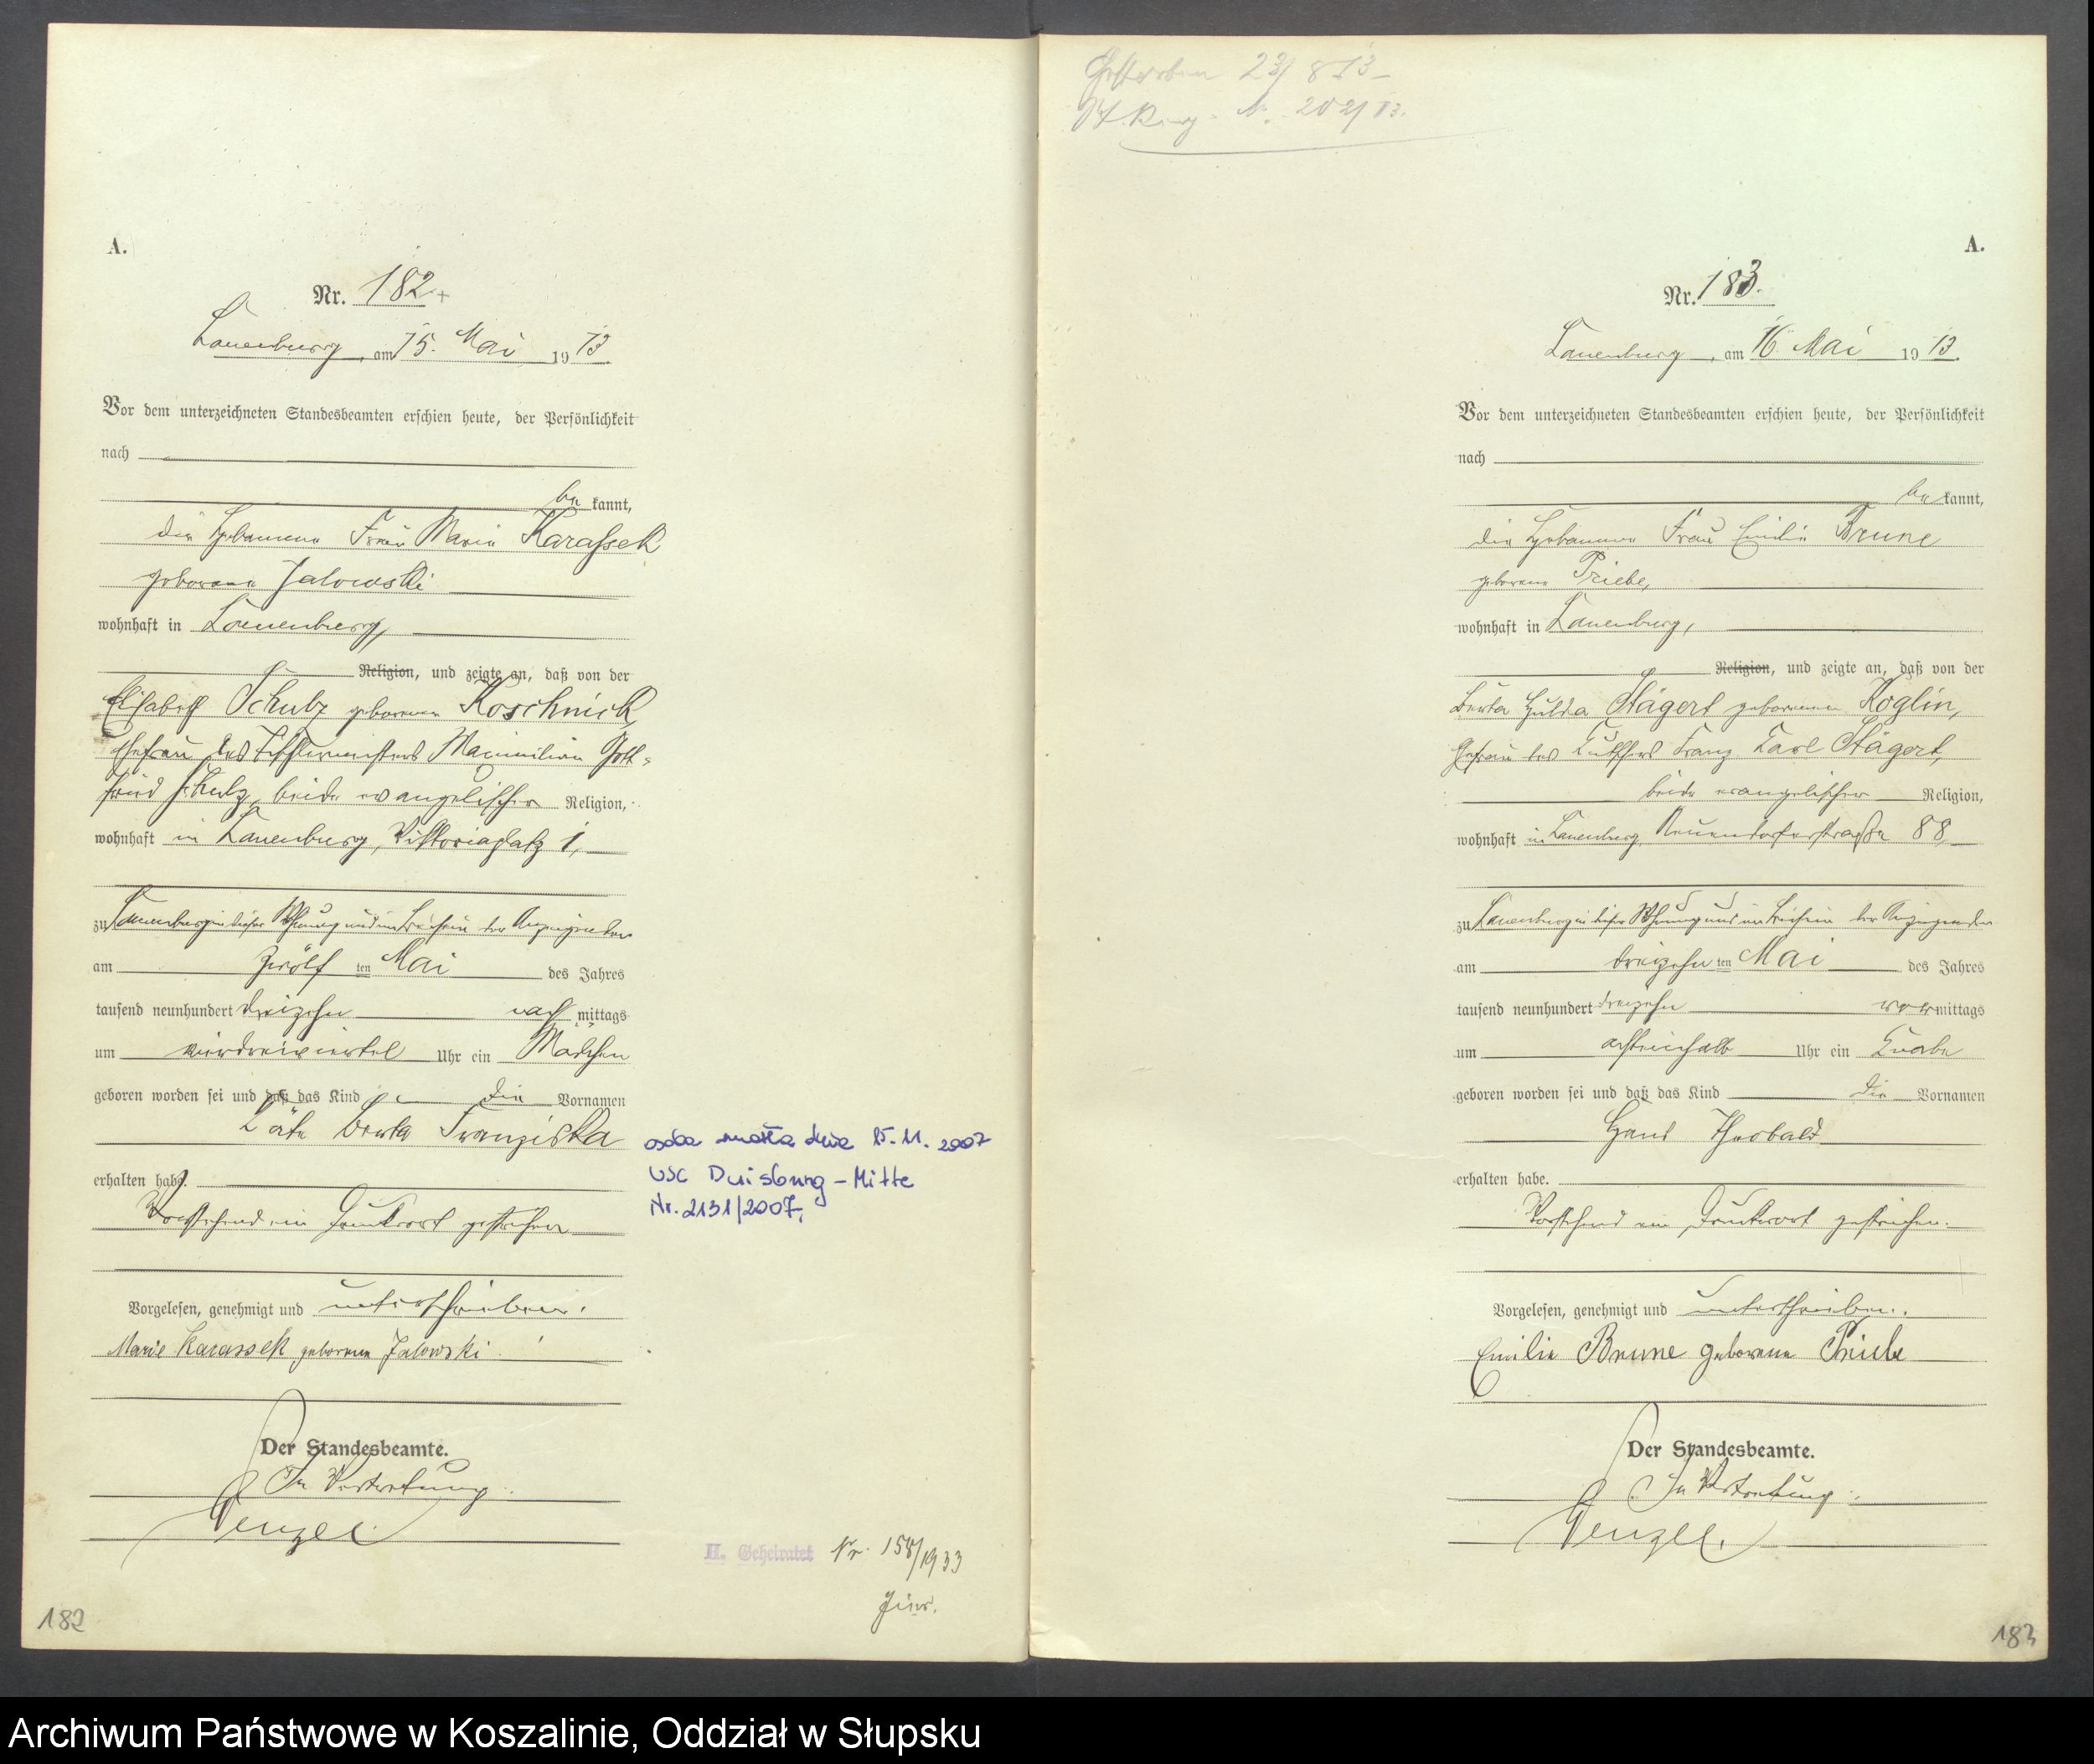 A.
Nr. 182.
Lauenburg, am 15. Mai 1913.
Vor dem unterzeichneten Standesbeamten erschien heute, der Persönlichkeit
nach
be kannt,
die Hebamme Frau Maria Karassek
geborene Jalowski
wohnhaft in Lauenburg,
Religion, und zeigte an, daß von der
Elisabeth Schulz geborenen Koschnick,
Ehefrau des Tischlermeisters Maximilian Gott-
fried Schulz, beide evangelischer Religion,
wohnhaft in Lauenburg, Viktoriaplatz 1,
zu Lauenburg in dieser Wohnung und im Beisein der Anzeigenden
am zwölf ten Mai des Jahres
tausend neunhundert dreizehn nach mittags
um vierdreiviertel Uhr ein Mädchen
geboren worden sei und daß das Kind die Vornamen
Käte Berta Franziska
erhalten habe.
Vorstehend ein Druckwort gestrichen
Vorgelesen, genehmigt und unterschrieben.
Marie Karassek geborene Jalowski
Der Standesbeamte.
In Vertretung.
Wenzel.
osoba zmarła dnia 15.11.2007
USC Duisburg-Mitte
Nr. 2131/2007,
H. Geheiratet Nr. 158/1933
182
Gestorben 23/8 13
St. Reg. N. 202/13.
A.
Nr. 183.
Lauenburg, am 16 Mai 1913.
Vor dem unterzeichneten Standesbeamten erschien heute, der Persönlichkeit
nach
be kannt,
die Hebamme Frau Emilie Brune
geborene Priebe,
wohnhaft in Lauenburg,
Religion, und zeigte an, daß von der
Berta Hulda Stägert geborenen Röglin,
Ehefrau des Kutschers Franz Karl Stägert,
beide evangelischer Religion,
wohnhaft in Lauenburg, Neuendorferstraße 88,
zu Lauenburg in dieser Wohnung und im Beisein der Anzeigenden
am dreizehn ten Mai des Jahres
tausend neunhundert dreizehn vor mittags
um achteinhalb Uhr ein Knabe
geboren worden sei und daß das Kind die Vornamen
Hans Theobald
erhalten habe.
Vorstehend ein Druckwort gestrichen.
Vorgelesen, genehmigt und unterschrieben.
Emilie Brune geborene Priebe
Der Standesbeamte.
In Vertretung.
Wenzel.
183
Archiwum Państwowe w Koszalinie, Oddział w Słupsku